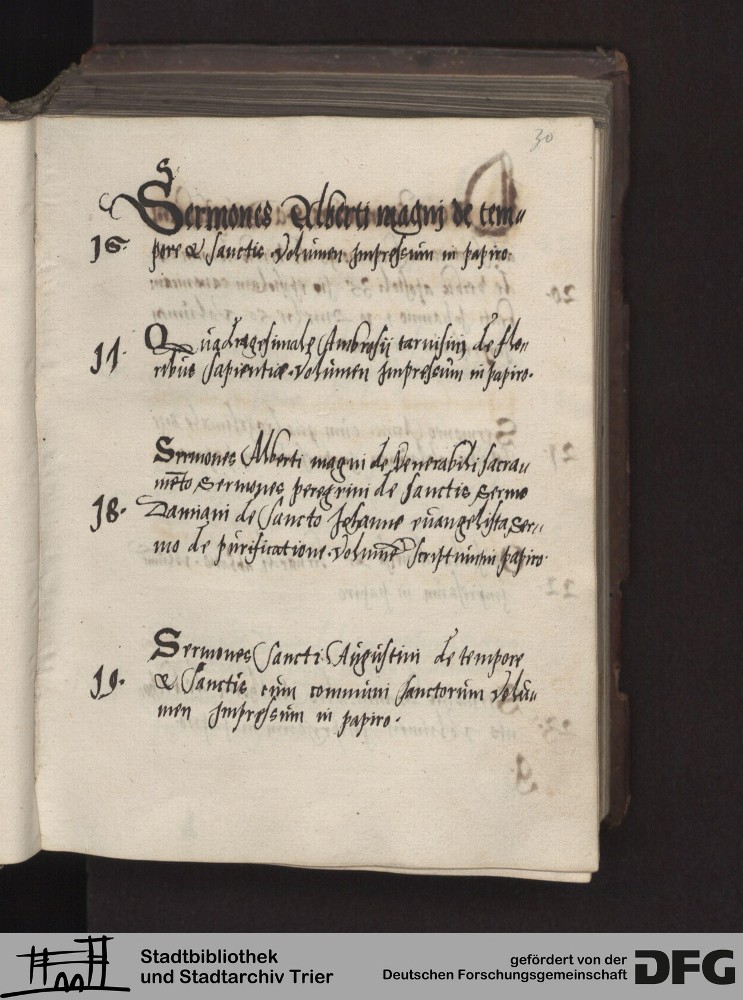 30
S
Sermones Alberti magni de tem„
16. pere & sanctis. Volumen Impressum in papiro.
17. Quadragesimale Ambrosii tarvisini de flo„
ribus sapientiæ. Volumen Impressum in papiro.
Sermones Alberti magni de Venerabili sacra„
mēto Sermones peregrini de sanctis Sermo
18. Damiani de sancto Johanne evangelista Ser„
mo de purificatione. Volumē scriptum in papiro
Sermones sancti Augustini de tempore
19. & sanctis cum communi sanctorum Volu„
men Impressum in papiro.
Stadtbibliothek
und Stadtarchiv Trier
gefördert von der
Deutschen Forschungsgemeinschaft
DFG